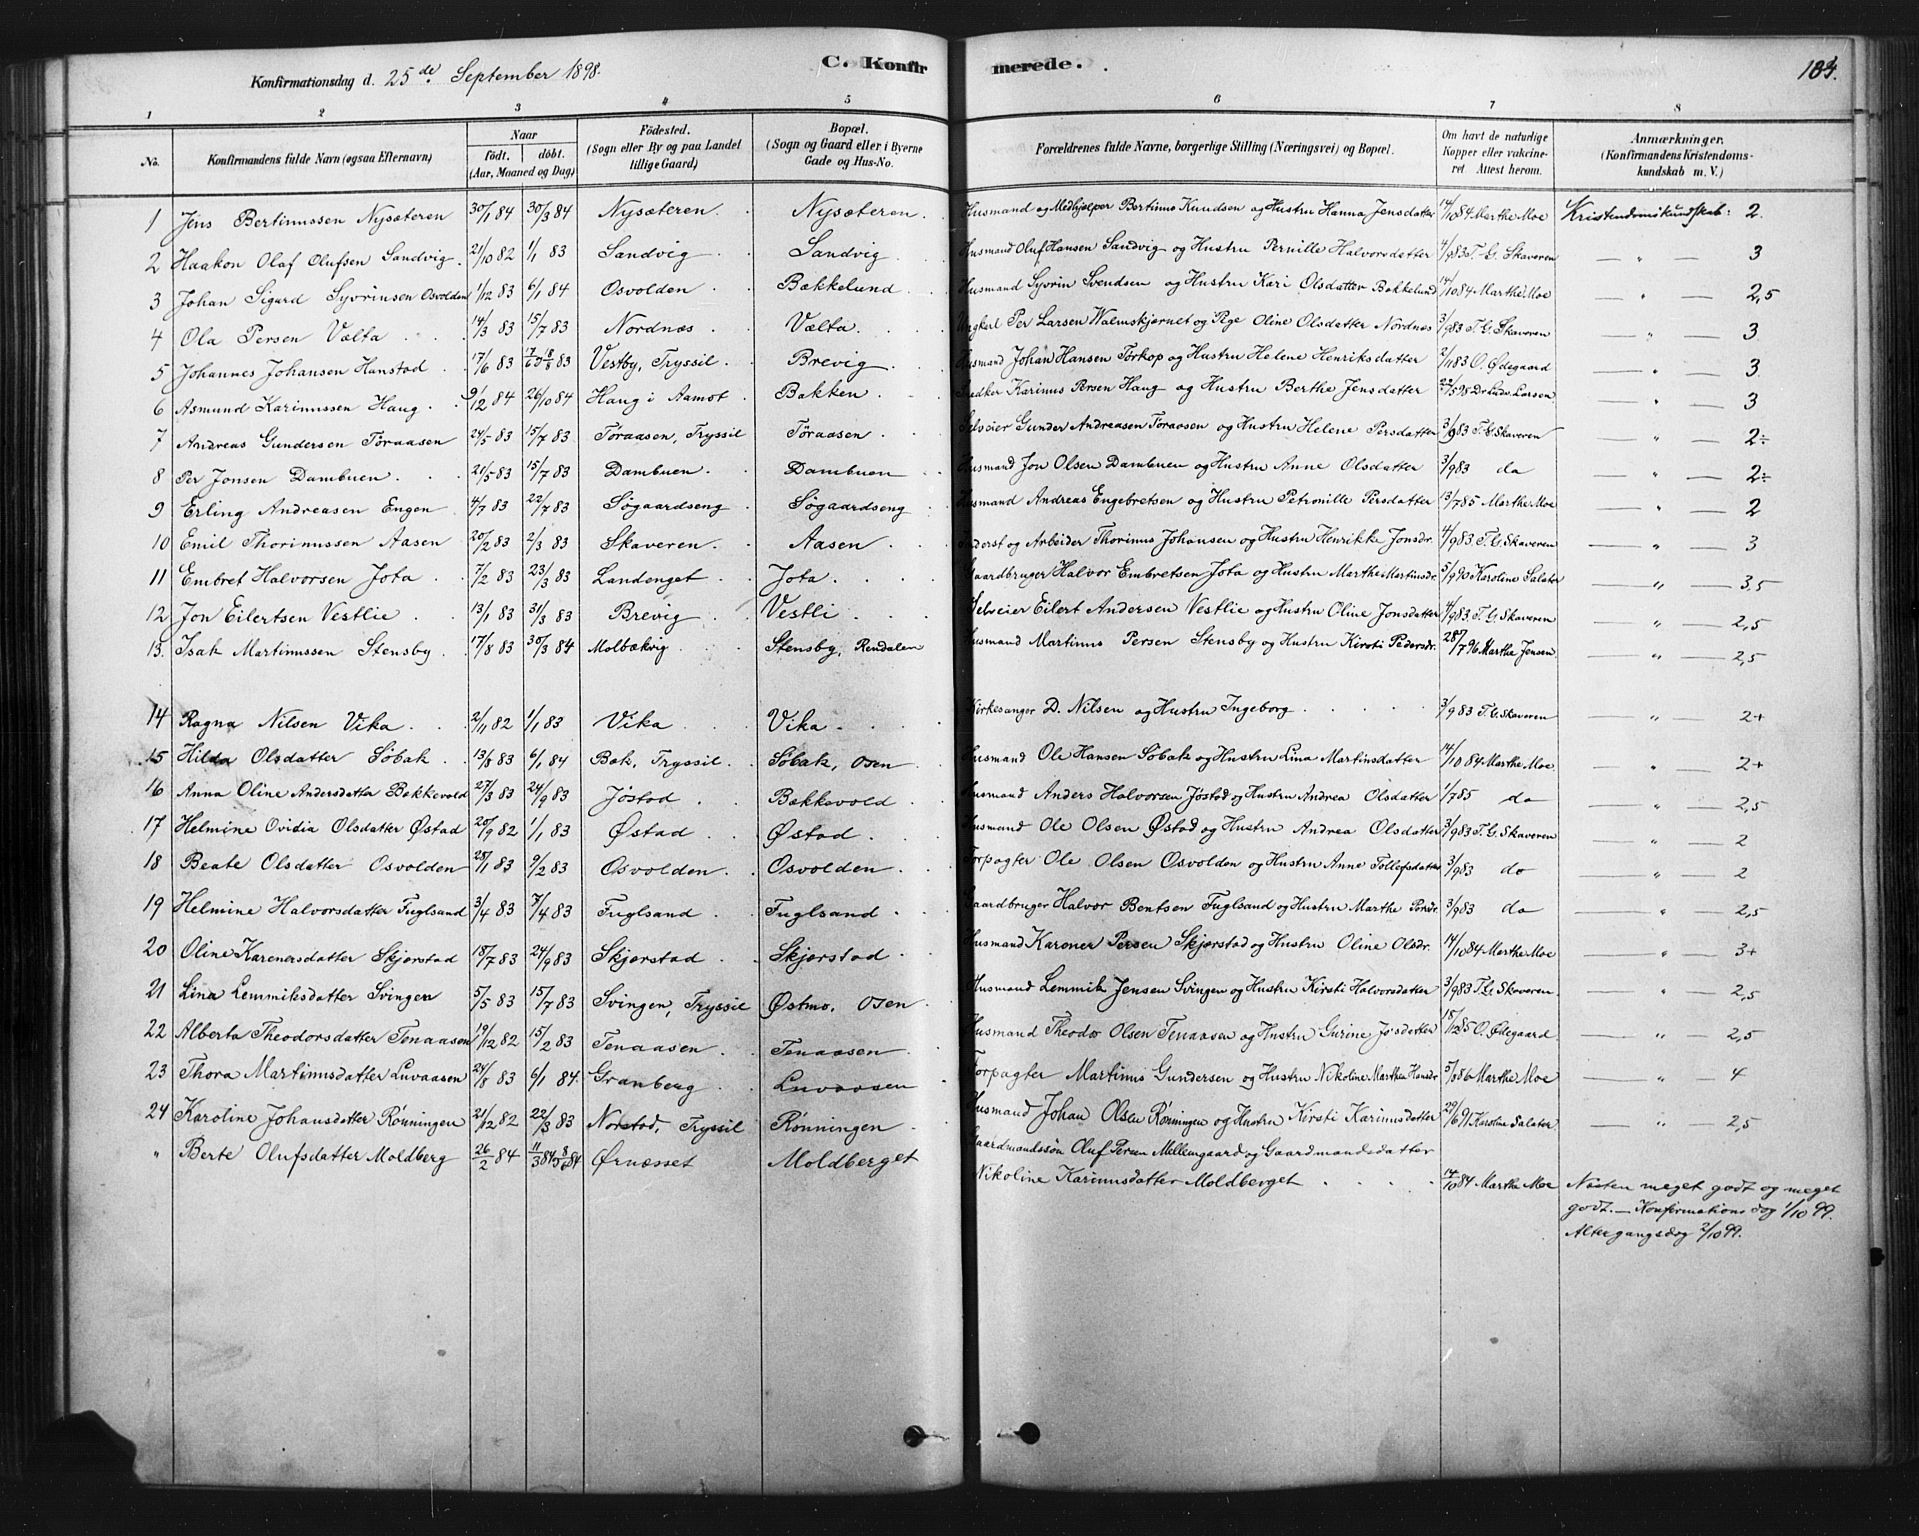 Konfirmationsdag d. 25de September 1898. C. Konfirmerede. 184.
1 2 3 4 5 6 7 8
No. Konfirmandens fulde Navn (ogsaa Efternavn) Naar født. døbt. (Aar, Maaned og Dag) Fødested. (Sogn eller By og paa Landet tillige Gaard) Bopæl. (Sogn og Gaard eller i Byerne Gade og Hus-No. Forældrenes fulde Navne, borgerlige Stilling (Næringsvei) og Bopæl. Om havt de naturlige Kopper eller vakcineret. Attest herom. Anmærkninger. (Konfirmandens Kristendomskundskab m. V.)
1 Jens Bertinussen Nysæteren 30/1 84 30/3 84 Nysæteren. Nysæteren. Husmand og Medhjælper Bertinus Knudsen og Hustru Hanna Jensdatter 14/10 84 Marthe Moe Kristendomskundskab: 2.
2 Haakon Olaf Olufsen Sandvig. 21/10 82 1/1 83 Sandvig Sandvig Husmand Oluf Hansen Sandvig og Hustru Pernille Halvorsdatter 4/9 83 T. G. Skaveren — „ — 3
3 Johan Sigurd Syvrinsen Osvolden 1/12 83 6/1 84 Osvolden Bakkelund Husmand Syvrin Svendsen og Hustru Kari Olsdatter Bakkelund 14/10 84 Marthe Moe — „ — 2,5
4 Ola Persen Vælta 14/3 83 15/7 83 Nordnæs Vælta. Ungkarl Per Larsen Walmskjærnet og Pige Oline Olsdatter Nordnæs 3/9 83 T. G. Skaveren — „ — 3
5 Johannes Johansen Hanstad 17/6 83 Vestby, Tryssil Brevig Husmand Johan Hansen Torkop og Hustru Helene Henriksdatter 2/11 83 O. Ødegaard — „ — 3
6 Asmund Karinussen Haug 9/12 84 26/10 84 Haug i Aamot Bakken Snedker Karinus Persen Haug og Hustru Berthe Jensdatter 22/5 98 Dr. Ludv. Larsen. — „ — 3
7 Andreas Gundersen Toraasen 24/5 83 15/7 83 Toraasen, Tryssil Toraasen Selveier Gunder Andreasen Toraasen og Hustru Helene Persdatter 3/9 83 T. G. Skaveren — „ — 2÷
8 Per Jonsen Dambuen 21/5 83 15/7 83 Dambuen. Dambuen Husmand Jon Olsen Dambuen og Hustru Anne Olsdatter 3/9 83 do — „ — 2÷
9 Erling Andreasen Engen 4/7 83 22/7 83 Søgaardseng Søgaardseng Husmand Andreas Engebretsen og Hustru Petronille Persdatter 13/7 85 Marthe Moe — „ — 2
10 Emil Thorinussen Aasen 20/2 83 2/3 83 Skaveren. Aasen Inderst og Arbeider Thorinus Johansen og Hustru Henrikke Jonsdr. 4/9 83. T. G. Skaveren — „ — 3
11 Embret Halvorsen Jota 7/2 83 23/3 83 Landenget Jota Gaardbruger Halvor Embretsen Jota og Hustru Marthe Martinsdr. 5/9 90 Karoline Salater — „ — 3,5
12 Jon Eilertsen Vestlie 13/1 83 31/3 83 Brevig Vestli Selveier Eilert Andersen Vestlie og Hustru Oline Jonsdatter 4/9 83. T. G. Skaveren — „ — 2,5
13. Isak Martinussen Stensby 17/8 83 30/3 84 Molbækvig Stensby, Rendalen Husmand Martinus Persen Stensby og Hustru Kirsti Pedersdr. 28/7 96 Marthe Jensen — „ — 2,5
14 Ragna Nilsen Vika 2/11 82 1/1 83 Vika Vika Kirkesanger D. Nilsen og Hustru Ingeborg 3/9 83 T. G. Skaveren — „ — 2+
15 Hilda Olsdatter Søbak 13/8 83 6/1 84 Bak, Tryssil Søbak, Osen Husmand Ole Hansen Søbak og Hustru Lina Martinsdatter 14/10 84 Marthe Moe — „ — 2+
16 Anna Oline Andersdatter Bækkevold 27/3 83 24/9 83 Jøstad Bækkevold Husmand Anders Halvorsen Jøstad og Hustru Andrea Olsdatter 1/7 85 do — „ — 2,5
17 Helmine Ovidia Olsdatter Østad 20/9 82 1/1 83 Østad Østad Husmand Ole Olsen Østad og Hustru Andrea Olsdatter 3/9 83 T. G. Skaveren — „ — 2
18 Beate Olsdatter Osvolden 28/1 83 9/2 83 Osvolden Osvolden Forpagter Ole Olsen Osvolden og Hustru Anne Tollefsdatter 3/9 83 do — „ — 2
19 Helmine Halvorsdatter Fuglsand 3/4 83 7/4 83 Fuglsand Fuglsand Gaardbruger Halvor Bentsen Fuglsand og Hustru Marthe Persdr. 3/9 83 do — „ — 2,5
20 Oline Karenersdatter Skjærstad 18/7 83 24/9 83 Skjærstad Skjærstad Husmand Karoner Persen Skjærstad og Hustru Oline Olsdr. 14/10 84 Marthe Moe — „ — 3+
21 Lina Lemmiksdatter Svingen 5/5 83 15/7 83 Svingen, Tryssil Østmo, Osen Husmand Lemmik Jensen Svingen og Hustru Kirsti Halvorsdatter 3/9 83 T. G. Skaveren. — „ — 2,5
22 Alberta Theodorsdatter Tenaasen 19/12 82 15/2 83 Tenaasen Tenaasen Husmand Theodor Olsen Tenaasen og Hustru Gurine Josdatter 18/12 85 O. Ødegaard. — „ — 2,5
23 Thora Martinusdatter Luvaasen 24/8 83 6/1 84. Granberg Luvaasen Forpagter Martinus Gundersen og Hustru Nikoline Marthea Hansdr 5/10 86 Marthe Moe — „ — 4
24 Karoline Johansdatter Rønningen 21/12 82 22/3 83 Norstad, Tryssil Rønningen Husmand Johan Olsen Rønningen og Hustru Kirsti Karinusdatter 29/6 91 Karoline Salater — „ — 2,5
„ Berte Olufsdatter Moldberg 26/2 84 11/3 84 8/6 84 Ørnæsset Moldberget Gaardmandssøn Oluf Persen Mellemgaard og Gaardmandsdatter
Nikoline Karinusdatter Moldberget 14/10 84 Marthe Moe Næsten meget godt og meget
godt. — Konfirmationsdag 1/10 99.
Altergangsdag 2/10 99.